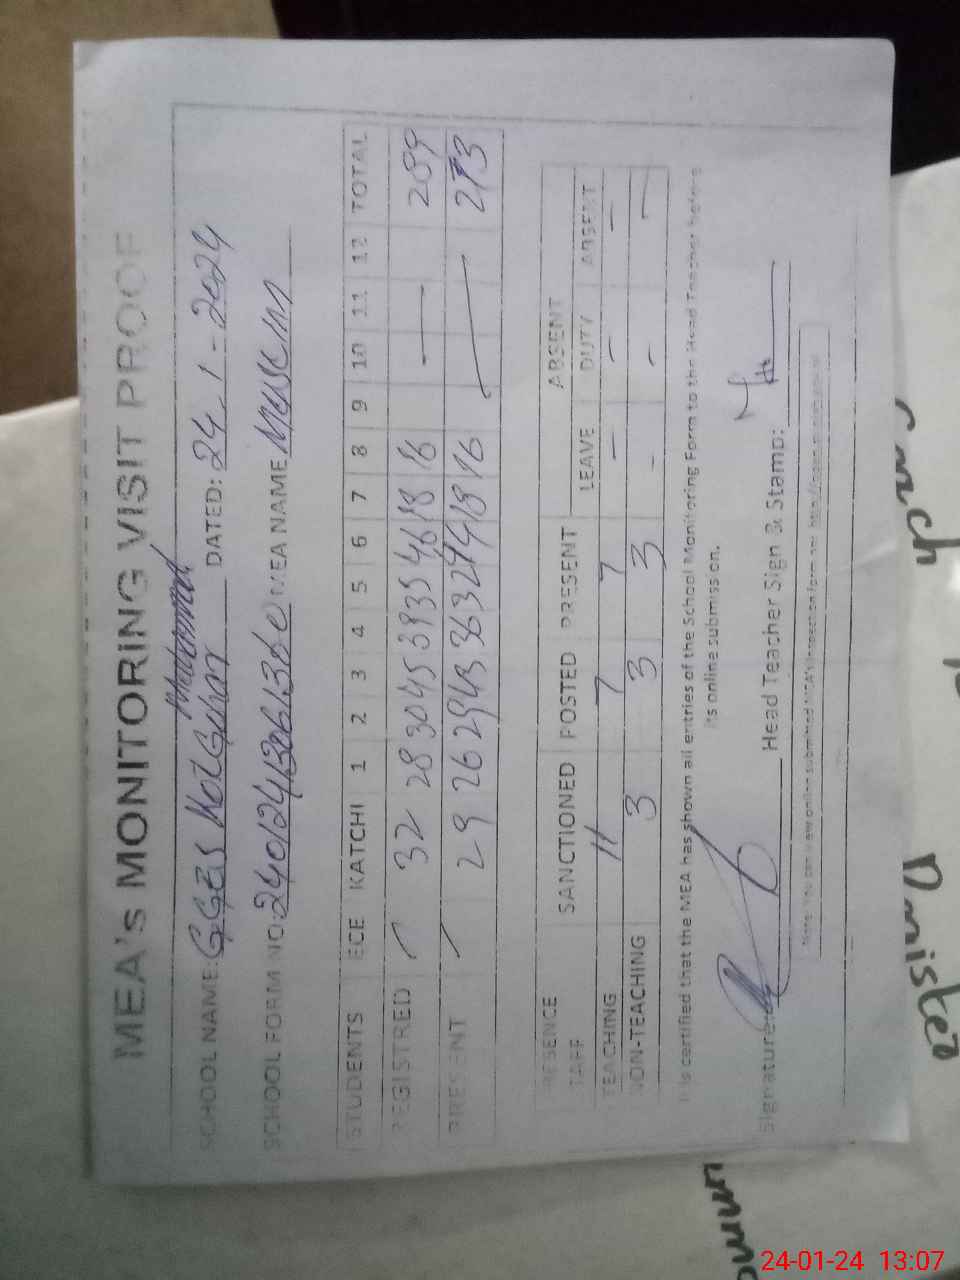 MEA's MONITORING VISIT PROOF
SCHOOL NAME: GGES Kot Gujjar DATED: 24_1-2024
SCHOOL FORM NO: MEA NAME Muslim
STUDENTS ECE KATCHI 1 2 3 4 5 6 7 8 9 10 11 12 TOTAL
REGISTRED 32 28 30 45 39 35 18 16 289
PRESENT 29 26 29 43 36 32 18 16 273
PRESENCE SANCTIONED POSTED PRESENT ABSENT
STAFF LEAVE DUTY ABSENT
TEACHING 11 7 7 - - -
NON-TEACHING 3 3 3 - - -
It is certified that the MEA has shown all entries of the School Monitoring Form to the Head Teacher before
its online submission.
Signature Head Teacher Sign & Stamp:
Note: You can view online submitted MEA's inspection form on:
24-01-24 13:07